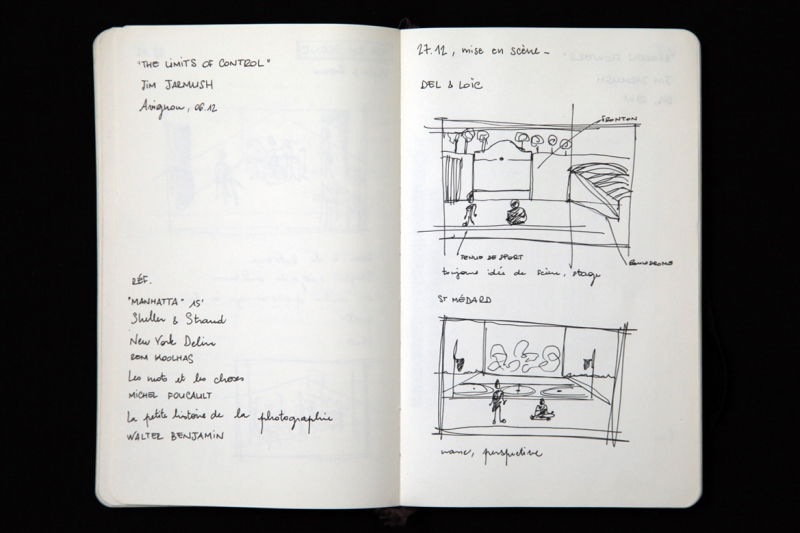 "THE LIMITS OF CONTROL"
JIM JARMUSH
Avignon, 06.12
RÉF.
"MANHATTA" 15'
Sheller & Strand
New York Delire
REM KOOLHAS
Les mots et les choses
MICHEL FOUCAULT
La petite histoire de la photographie
WALTER BENJAMIN
27.12, mise en scène -
DEL & LOÏC
FRONTON
TENUE DE SPORT
toujours idée de scène, stage
ST MÉDARD
perspective